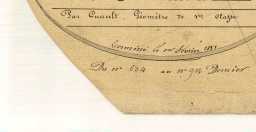 Par Cunault, Géomètre de 1re classe
Terminé le 1er Février 1831
Du no 654 au no 914 Dernier